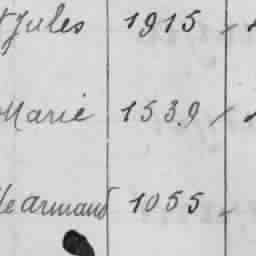 Jules 1915
Marie 1539
armand 1055